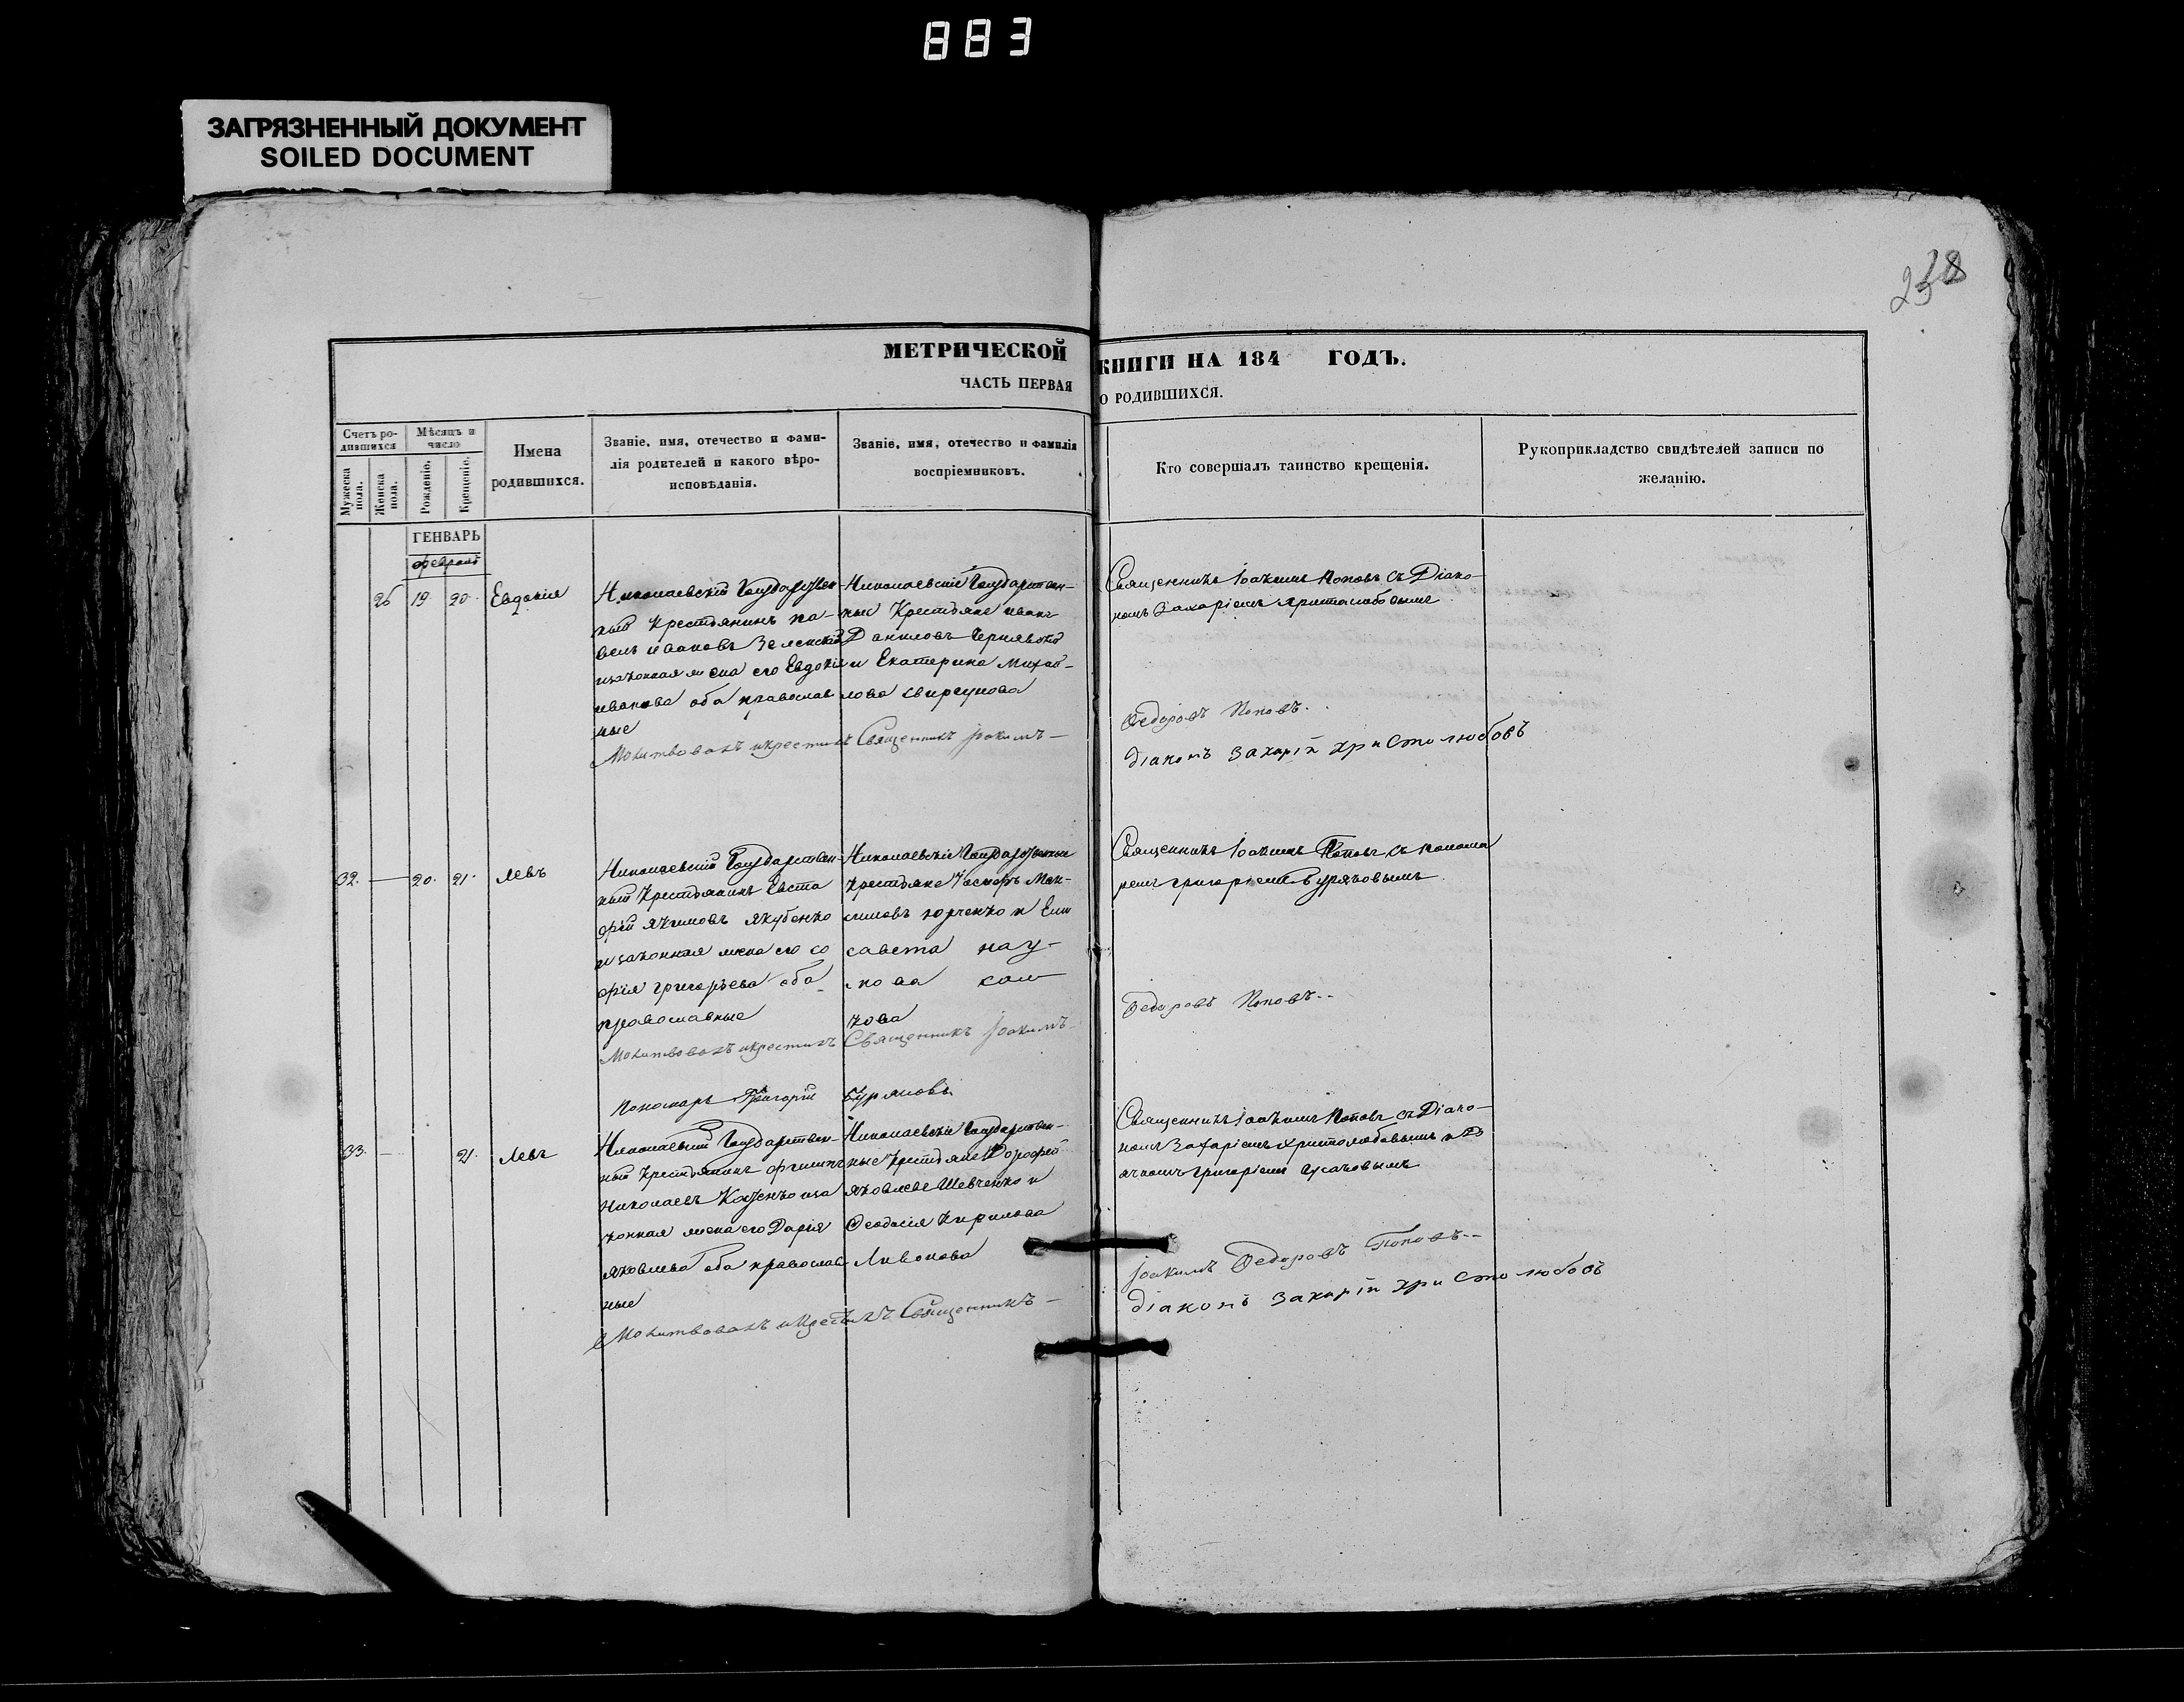 883
ЗАГРЯЗНЕННЫЙ ДОКУМЕНТ
SOILED DOCUMENT
238
МЕТРИЧЕСКОЙ КНИГИ НА 184 ГОДЪ.
ЧАСТЬ ПЕРВАЯ О РОДИВШИХСЯ.
Счетъ ро-
дившихся
Мужеска пола.
Женска пола.
Мѣсяцъ и
число
Рожденіе.
Крещеніе.
Имена
родившихся.
Званіе, имя, отечество и фами-
лія родителей и какого вѣро-
исповѣданія.
Званіе, имя, отечество и фамилія
воспріемниковъ.
Кто совершалъ таинство крещенія.
Рукоприкладство свидѣтелей записи по
желанію.
ГЕНВАРЬ
февраль
26 19 20. Евдокія
Николаевскій Государствен-
ный Крестьянинъ Па-
велъ Ивановъ Зеленскій
и законная жена его Евдокія
Иванова оба православ
ные
Николаевскіе Государствен-
ные Крестьяне Иванъ
Даниловъ Чернявскій
и Екатерина Михай-
лова Свиргунова
Священникъ Іоакимъ Поповъ съ Діако-
номъ Захаріемъ Христолюбовымъ
Молитвовалъ и крестилъ Священникъ Іоакимъ
Федоровъ Поповъ.
Діаконъ Захарій Христолюбовъ
32. 20. 21. Левъ
Николаевскій Государствен-
ный Крестьянинъ Евста
фій Якимовъ Якубенко
и законная жена его Со
фія Григорьева оба
православные
Николаевскіе Государственные
Крестьяне
симовъ Юрченко и Ели
савета Нау-
мова
кова
Священникъ Іоакимъ Поповъ съ Понома
ремъ Григоріемъ Буряковымъ.
Молитвовалъ и крестилъ Священникъ Іоакимъ
Федоровъ Поповъ.
Пономарь Григорій Буряковъ
33. 21. Левъ
Николаевскій Государствен-
ный Крестьянинъ Филипъ
Николаевъ Коценко и за
конная жена его Дарія
Яковлева оба православ
ные
Николаевскіе Государствен-
ные Крестьяне Дорофей
Яковлевъ Шевченко и
Феодосія Кирилова
Ливонова
Священникъ Іоакимъ Поповъ съ Діако-
номъ Захаріемъ Христолюбовымъ и Дь
ячкомъ Григоріемъ Усаковымъ
Молитвовалъ и крестилъ Священникъ
Іоакимъ Федоровъ Поповъ
Діаконъ Захарій Христолюбовъ